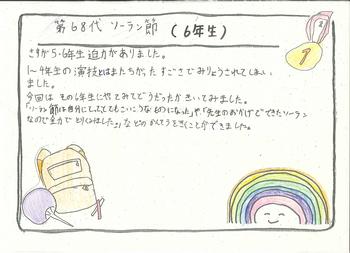 第68代 ソーラン節 (6年生)
さすが5・6年生迫力がありました。
1~4年生の演技とはまたちがったすごさでみりょうされてしまい
ました。
今回は その6年生にやってみてどうだったか きいてみました。
「ソーラン節は自分にとってとてもこいこうな ものになった」や「先生のおかげでできたソーラン
なので全力で とりくみました。」などの かんそうをきくことができました。
1